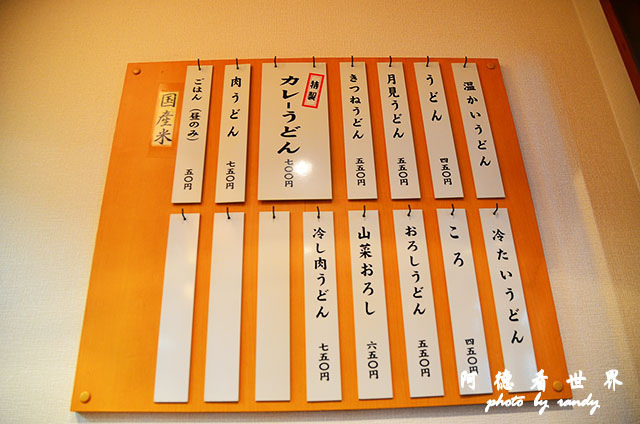 温かいうどん
うどん 四五〇円
月見うどん 五五〇円
きつねうどん 五五〇円
特製
カレーうどん 七〇〇円
肉うどん 七五〇円
ごはん（昼のみ） 五〇円
国産米
冷たいうどん
ころ 四五〇円
おろしうどん 五五〇円
山菜おろし 六五〇円
冷し肉うどん 七五〇円
阿德看世界
photo by randy